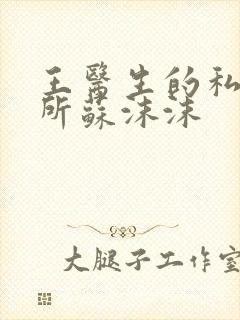 王醫生的私
所蘇沫沫
大腿子工作室